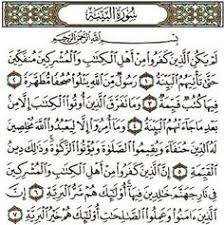 سُورَةُ البَيِّنَةِ
بِسْمِ اللَّهِ الرَّحْمَٰنِ الرَّحِيمِ
لَمْ يَكُنِ الَّذِينَ كَفَرُوا مِنْ أَهْلِ الْكِتَابِ وَالْمُشْرِكِينَ مُنْفَكِّينَ
حَتَّىٰ تَأْتِيَهُمُ الْبَيِّنَةُ ١ رَسُولٌ مِنَ اللَّهِ يَتْلُوا صُحُفًا مُطَهَّرَةً ٢
فِيهَا كُتُبٌ قَيِّمَةٌ ٣ وَمَا تَفَرَّقَ الَّذِينَ أُوتُوا الْكِتَابَ إِلَّا مِنْ
بَعْدِ مَا جَاءَتْهُمُ الْبَيِّنَةُ ٤ وَمَا أُمِرُوا إِلَّا لِيَعْبُدُوا اللَّهَ مُخْلِصِينَ
لَهُ الدِّينَ حُنَفَاءَ وَيُقِيمُوا الصَّلَوٰةَ وَيُؤْتُوا الزَّكَوٰةَ وَذَٰلِكَ دِينُ
الْقَيِّمَةِ ٥ إِنَّ الَّذِينَ كَفَرُوا مِنْ أَهْلِ الْكِتَابِ وَالْمُشْرِكِينَ
فِي نَارِ جَهَنَّمَ خَالِدِينَ فِيهَا أُولَٰئِكَ هُمْ شَرُّ الْبَرِيَّةِ ٦ إِنَّ
الَّذِينَ ءَامَنُوا وَعَمِلُوا الصَّالِحَاتِ أُولَٰئِكَ هُمْ خَيْرُ الْبَرِيَّةِ ٧